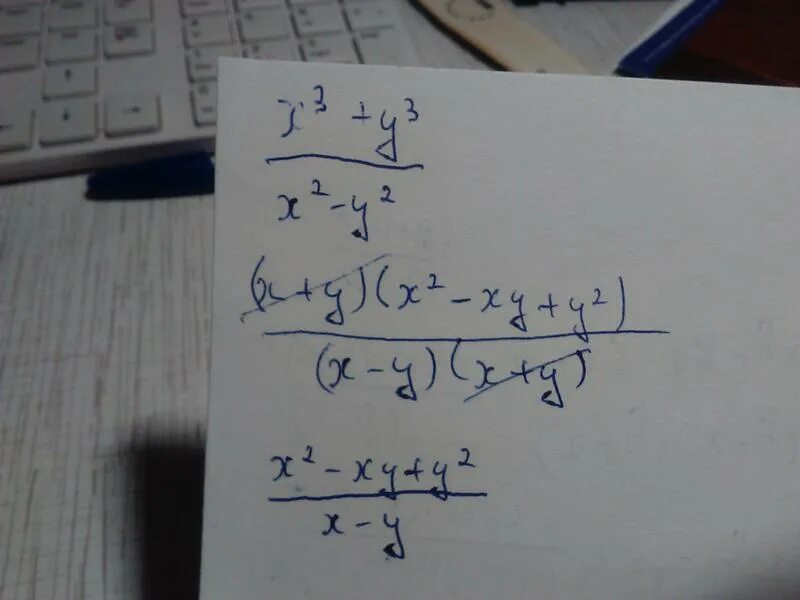 x³ + y³
x² - y²
(x + y)(x² - xy + y²)
(x - y)(x + y)
x² - xy + y²
x - y